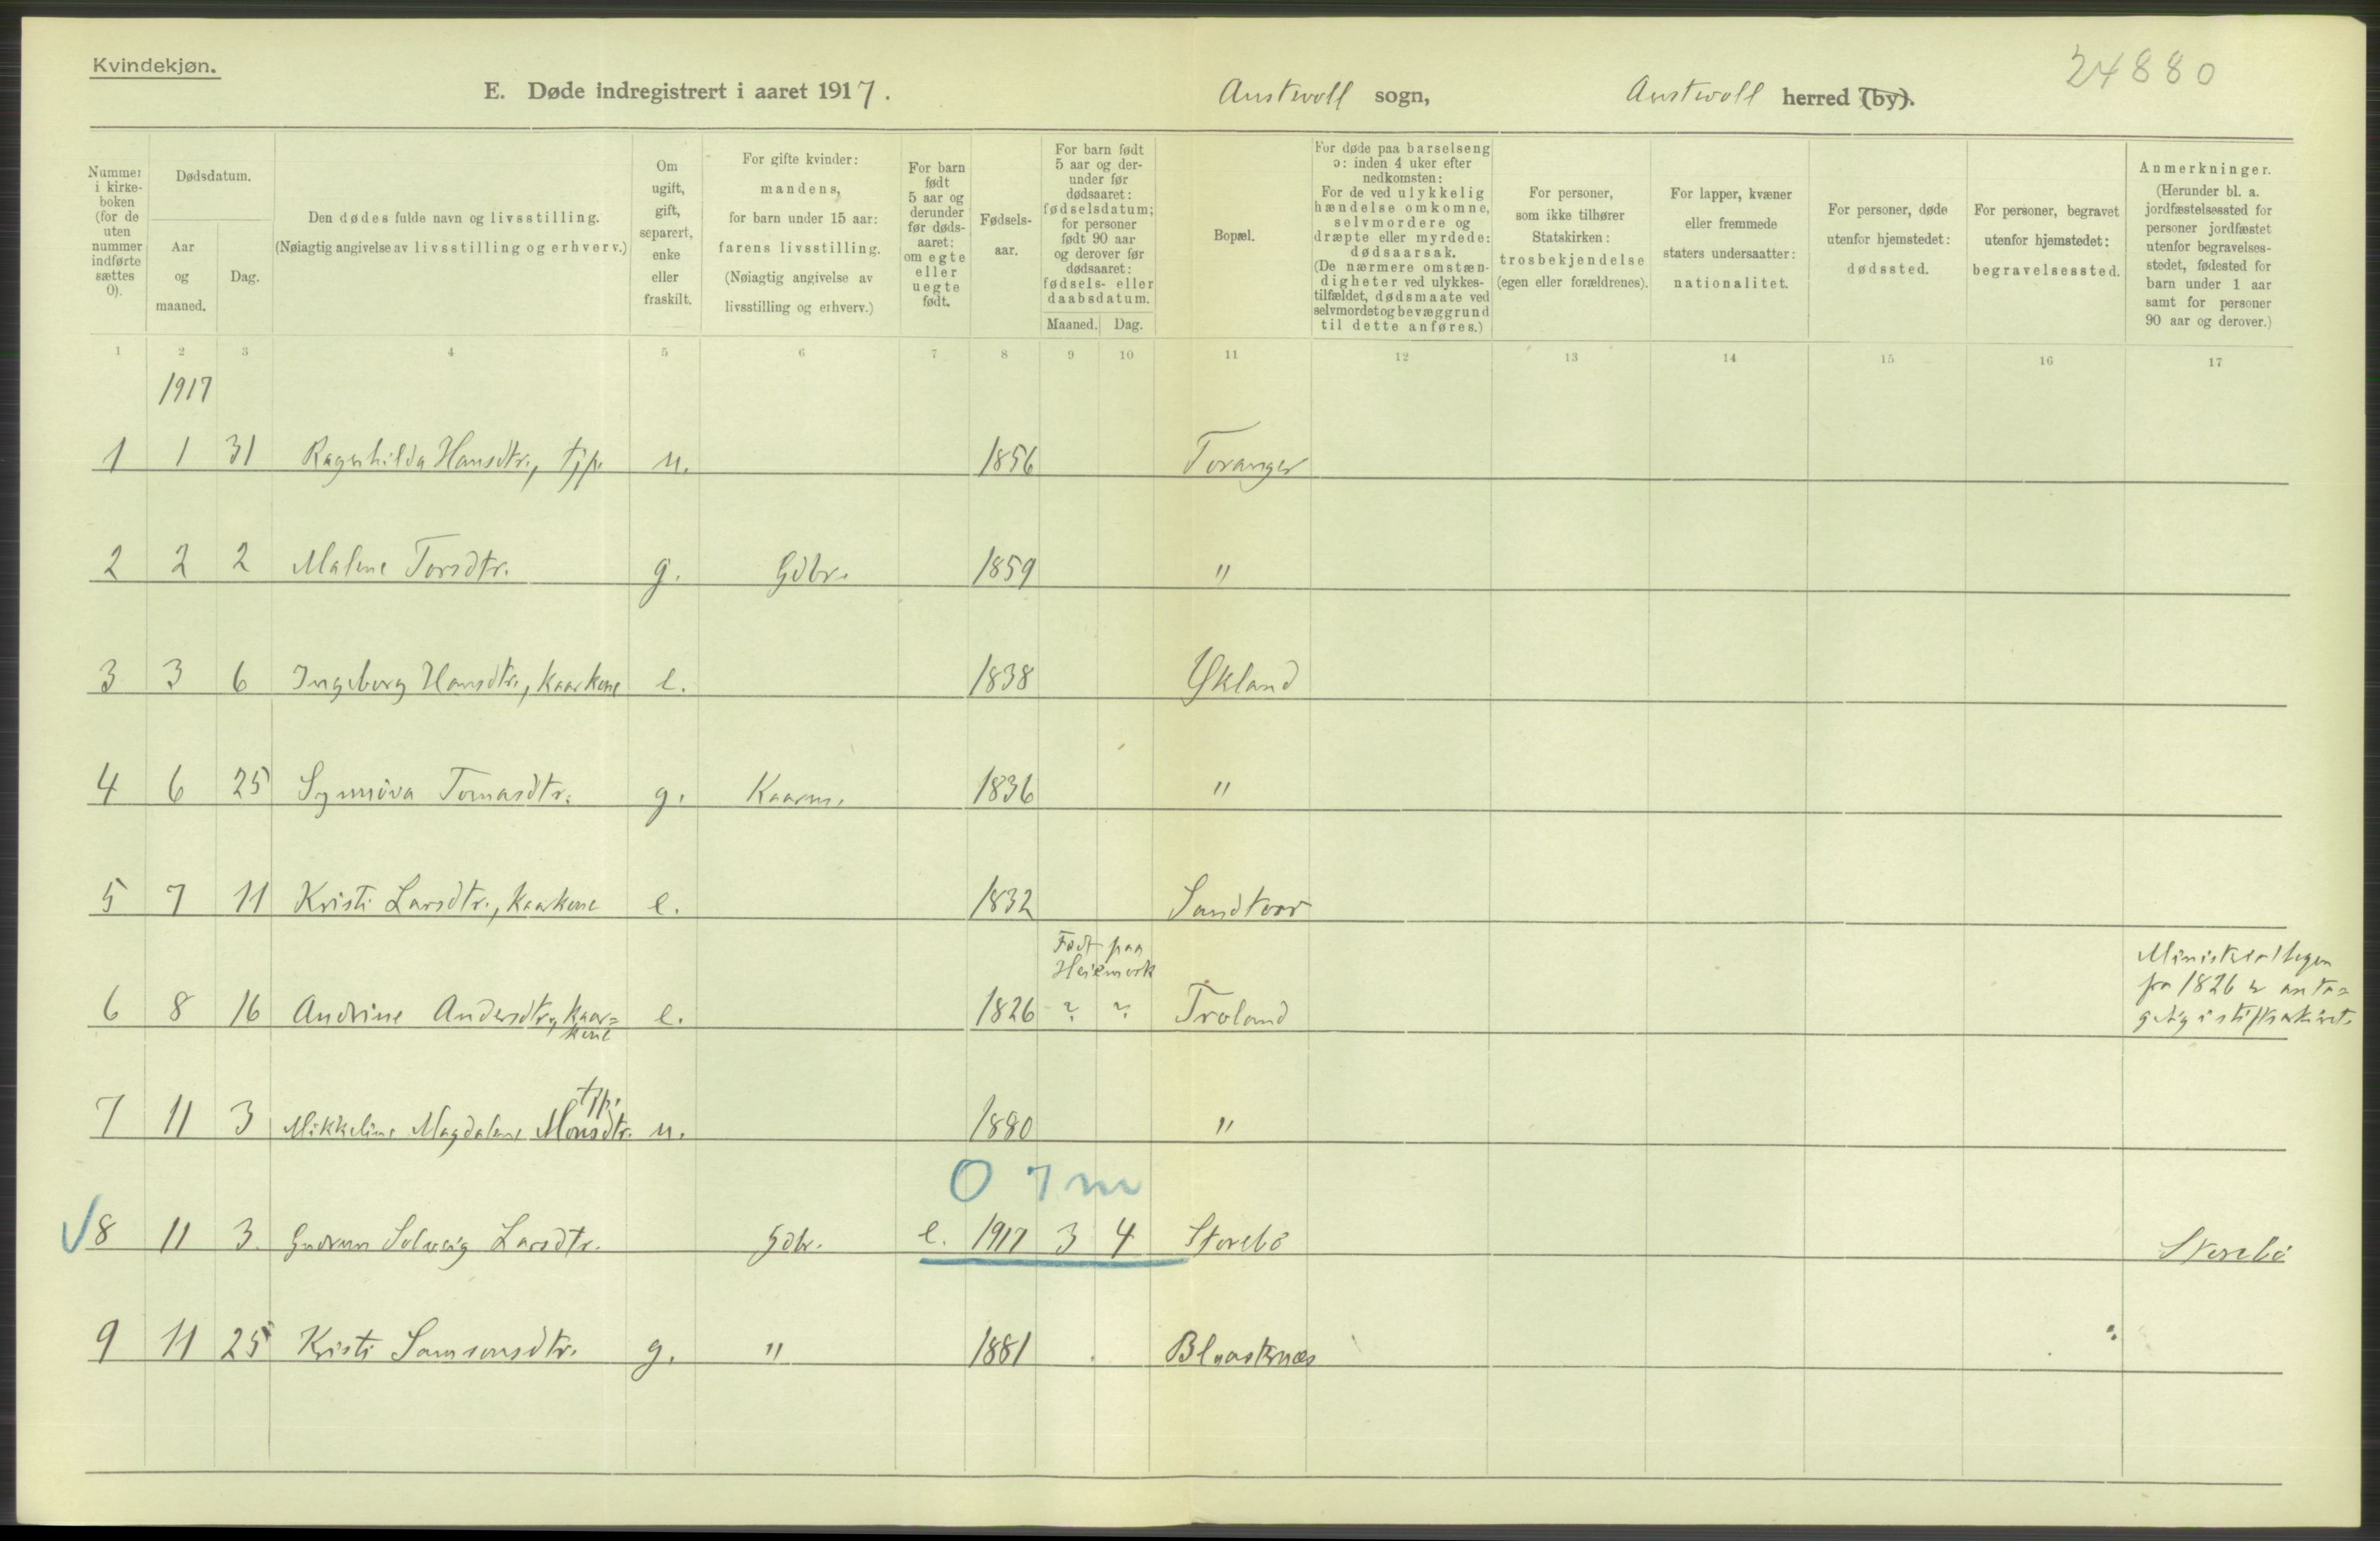 Kvindekjøn.
24880
E. Døde indregistrert i aaret 1917. Austevoll sogn, Austevoll herred (by).
Nummer i kirke-boken (for de uten nummer indførte sættes 0).
Dødsdatum.
Aar og maaned.
Dag.
Den dødes fulde navn og livsstilling.
(Nøiagtig angivelse av livsstilling og erhverv.)
Om ugift, gift, separert, enke eller fraskilt.
For gifte kvinder: mandens, for barn under 15 aar: farens livsstilling. (Nøiagtig angivelse av livsstilling og erhverv.)
For barn født 5 aar og derunder før døds-aaret: om egte eller uegte født.
Fødsels-aar.
For barn født 5 aar og der-under før dødsaaret: fødselsdatum; for personer født 90 aar og derover før dødsaaret: fødsels- eller daabsdatum.
Maaned. Dag.
Bopæl.
For døde paa barselseng ɔ: inden 4 uker efter nedkomsten: For de ved ulykkelig hændelse omkomne, selvmordere og dræpte eller myrdede: dødsaarsak. (De nærmere omstæn-digheter ved ulykkes-tilfældet, dødsmaate ved selvmordet og bevæggrund til dette anføres.)
For personer, som ikke tilhører Statskirken: trosbekjendelse (egen eller forældrenes).
For lapper, kvæner eller fremmede staters undersaatter: nationalitet.
For personer, døde utenfor hjemstedet: dødssted.
For personer, begravet utenfor hjemstedet: begravelsessted.
Anmerkninger. (Herunder bl. a. jordfæstelsessted for personer jordfæstet utenfor begravelses-stedet, fødested for barn under 1 aar samt for personer 90 aar og derover.)
1 2 3 4 5 6 7 8 9 10 11 12 13 14 15 16 17
1917
1 1 31 Ragnhilda Hansdtr., tjp. u. 1856 Toranger
2 2 2 Malene Torsdtr. g. Gdbr. 1859 "
3 3 6 Ingeborg Hansdtr., kaarkone e. 1838 Økland
4 6 25 Synnöva Tomasdtr. g. Kaarm. 1836 "
5 7 11 Kristi Larsdtr., kaarkone e. 1832 Sandtorv
Født paa
Heiemark
6 8 16 Andrine Andersdtr., kaar=
kone e. 1826 ? ? Troland
Ministerialbogen
fra 1826 er
i stiftsarkivet.
tjp.
7 11 3 Mikkeline Magdalene Monsdtr. u. 1880 "
0 7 m
8 11 3. Gudrun Solveig Larsdtr. Gdbr. e. 1917 3 4 Storebö Storebö
9 11 25 Kristi Samsonsdtr. g. " 1881 Blaasternæs